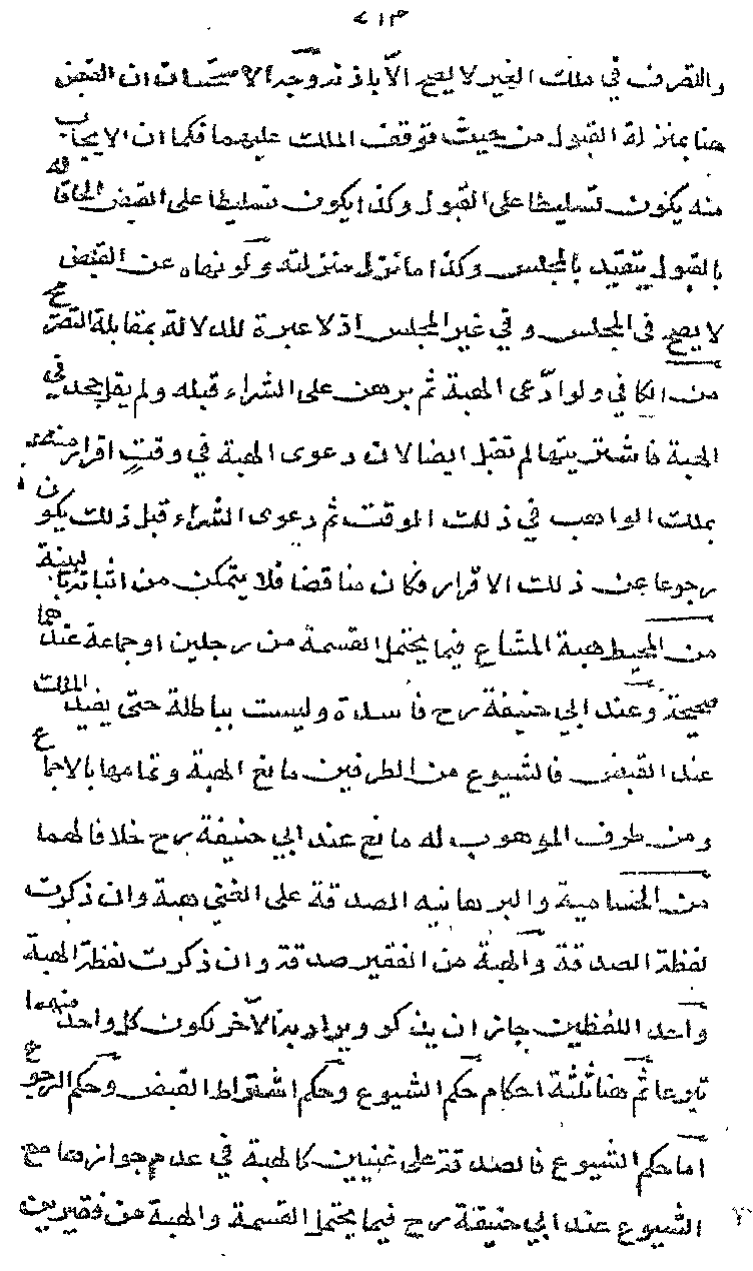 ٧١٣
والتصرف في ملك الغير لا يصح الا باذنه وجه الاستحسان ان القبض
هنا بمنزلة القبول من حيث توقف الملك عليهما فكما ان الايجاب
منه يكون تسليطا على القبول وكذا يكون تسليطا على القبض الحاقا له
بالقبول يتقيد بالمجلس وكذا ما نزل منزلته ولو نهاه عن القبض
لا يصح في المجلس وفي غير المجلس اذ لا عبرة للدلالة بمقابلة التصريح
من الكافي ولو ادّعى الهبة ثم برهن على الشراء قبله ولم يقل جحدني
الهبة فاشتريتها لم تقبل ايضا لان دعوى الهبة في وقتٍ اقرار منه
بملك الواهب في ذلك الوقت ثم دعوى الشراء قبل ذلك يكون
رجوعا عن ذلك الاقرار فكان مناقضا فلا يتمكن من اثباته بالبينة
من المحيط هبة المشاع فيما يحتمل القسمة من رجلين او جماعة عندهما
صحيحة وعند ابي حنيفة رح فاسدة وليست بباطلة حتى يفيد الملك
عند القبض فالشيوع من الطرفين مانع الهبة وتمامها بالاجماع
ومن طرف الموهوب له مانع عند ابي حنيفة رح خلافا لهما
من الحسامية والبرهانيه الصدقة على الغني هبة وان ذكرت
لفظة الصدقة والهبة من الفقير صدقة وان ذكرت لفظة الهبة
واحد اللفظين جاز ان يذكر ويراد به الآخر لكون كل واحد منهما
تبرعا ثم هنا ثلثة احكام حكم الشيوع وحكم اشتراط القبض وحكم الرجوع
اما حكم الشيوع فالصدقة على غنيين كالهبة في عدم جوازها مع
الشيوع عند ابي حنيفة رح فيما يحتمل القسمة والهبة من فقيرين